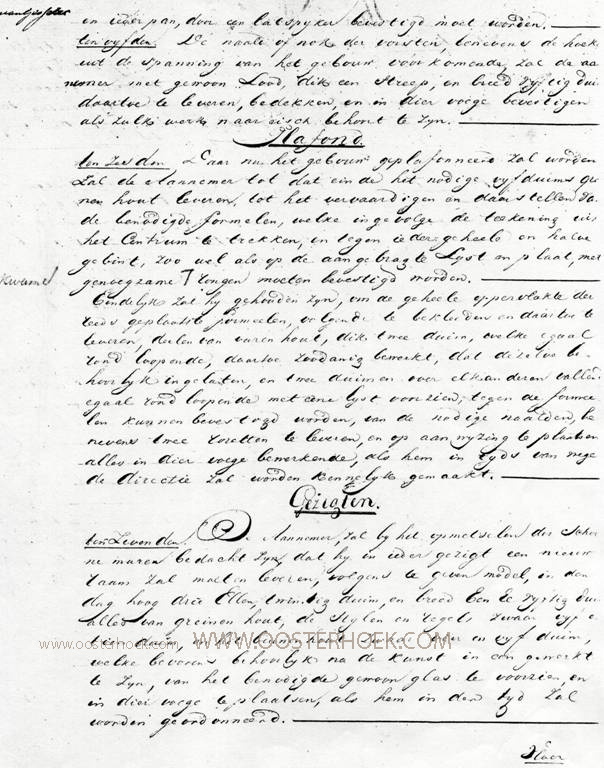 en ieder pan, door een latspyker bevestigd moet worden.
ten vyfden. De naald of nok der vorsten, benevens de hoek
uit de spanning van het gebouw voorkomende, zal de aa
nemer met gewoon Lood, dik een Streep, en breed vyftig dui
daartoe te leveren, bedekken, en in dier voege bevestigen
als zulk werk naar eisch behoort te zyn.
Plafond.
ten Zesden. Daar nu het gebouw geplafonneerd zal worden
zal de Aannemer tot dat einde het nodige vyfduims
nen hout leveren, tot het vervaardigen en daarstellen
de benodigde formelen, welke ingevolge de tekening uit
het Centrum te trekken, en tegen ieder geheele en halve
gebint, zoo wel als op de aangebragte Lyst en plaat, met
genoegzame tongen moeten bevestigd worden.
Eindelyk zal hy gehouden zyn, om de geheele oppervlakte der
reeds geplaatste formeelen, volgende te bekleeden en daartoe te
leveren, deelen van vuren hout, dik twee duim, welke egaal
rond loopende, daartoe zoodanig bewerkt, dat dezelve be-
hoorlyk ingelaten, en twee duimen over elkanderen vallen
egaal rond loopende met eene lyst voorzien, tegen de forme
len kunnen bevestigd worden, van de nodige naalden, be
nevens twee rosetten te leveren, en op aanwyzing te plaatsen
alles in dier voege bewerkende, als hem in tyds van wege
de directie zal worden kennelyk gemaakt.
Gezigten.
ten Zevenden. De Aannemer, zal by het opmetselen der
ne muren bedacht zyn, dat hy in ieder gezigt een nieuw
raam zal moeten leveren, volgens te geven model, in den
dag hoog drie Ellen twintig duim, en breed Een El vyftig dui
alles van greinen hout, de Stylen en regels zwaar
drie duim, en vyf duim,
welke bevorens behoorlyk na de kunst in een gewerkt
te zyn, van het benodigde gewoon glas te voorzien, en
in dier voege te plaatsen, als hem in der tyd zal
worden geordonneerd.
Vloer
www.oosterhoek.com
WWW.OOSTERHOEK.COM
www.oosterhoek.com